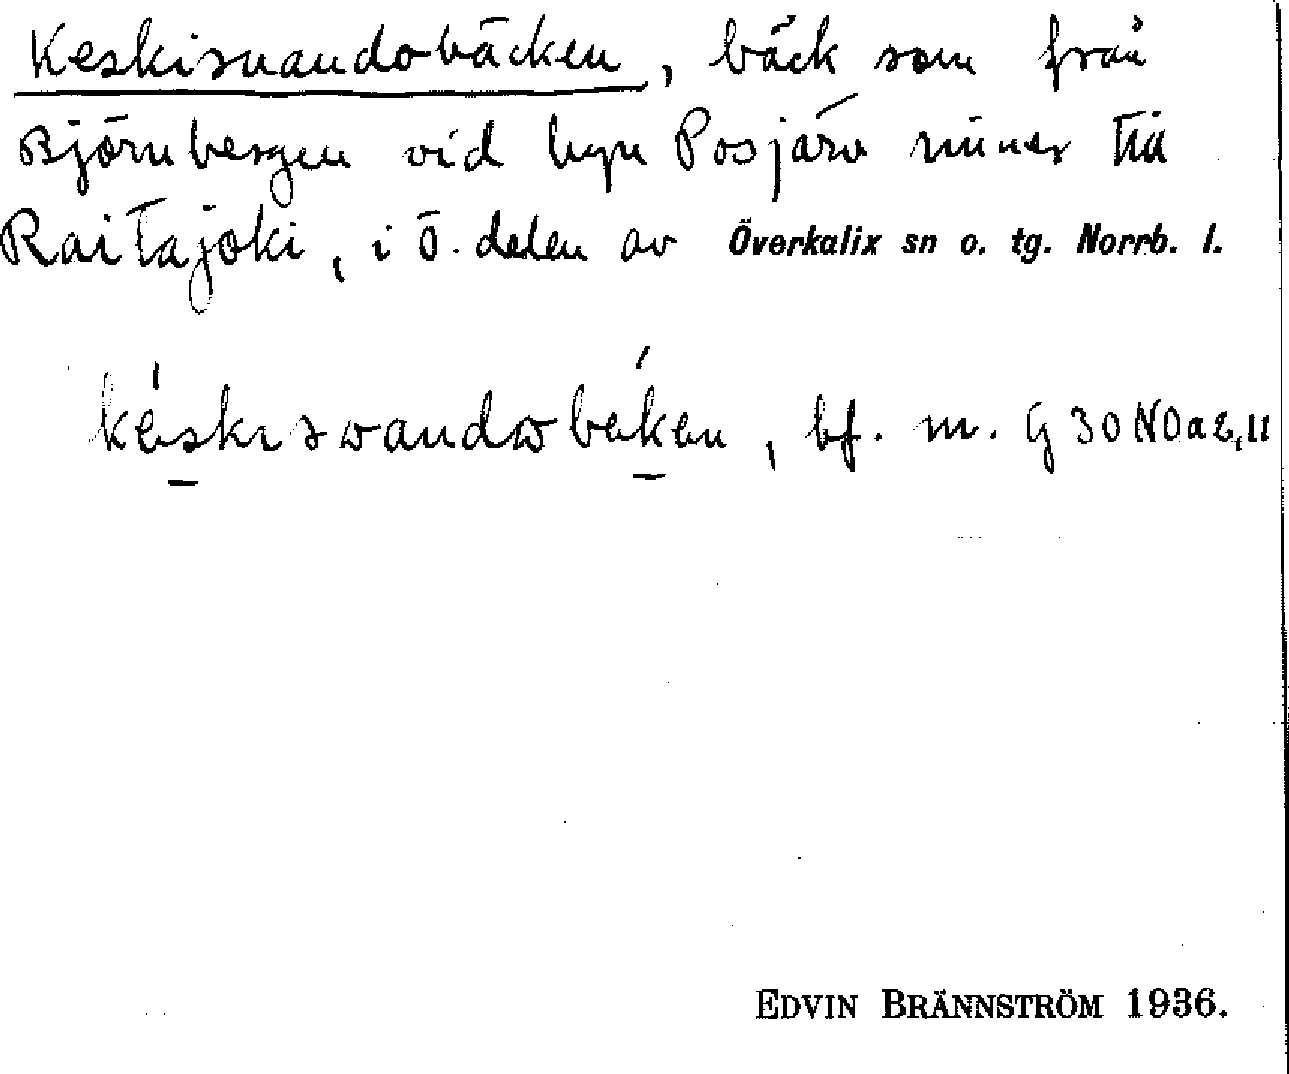 Keskisuandobäcken, bäck som från
Björnbergen vid byn Posjärv rinner till
Raitajoki, i ö. delen av Överkalix sn o. tg. Norrb. l.
bf. m. G 30
EDVIN BRÄNNSTRÖM 1936.